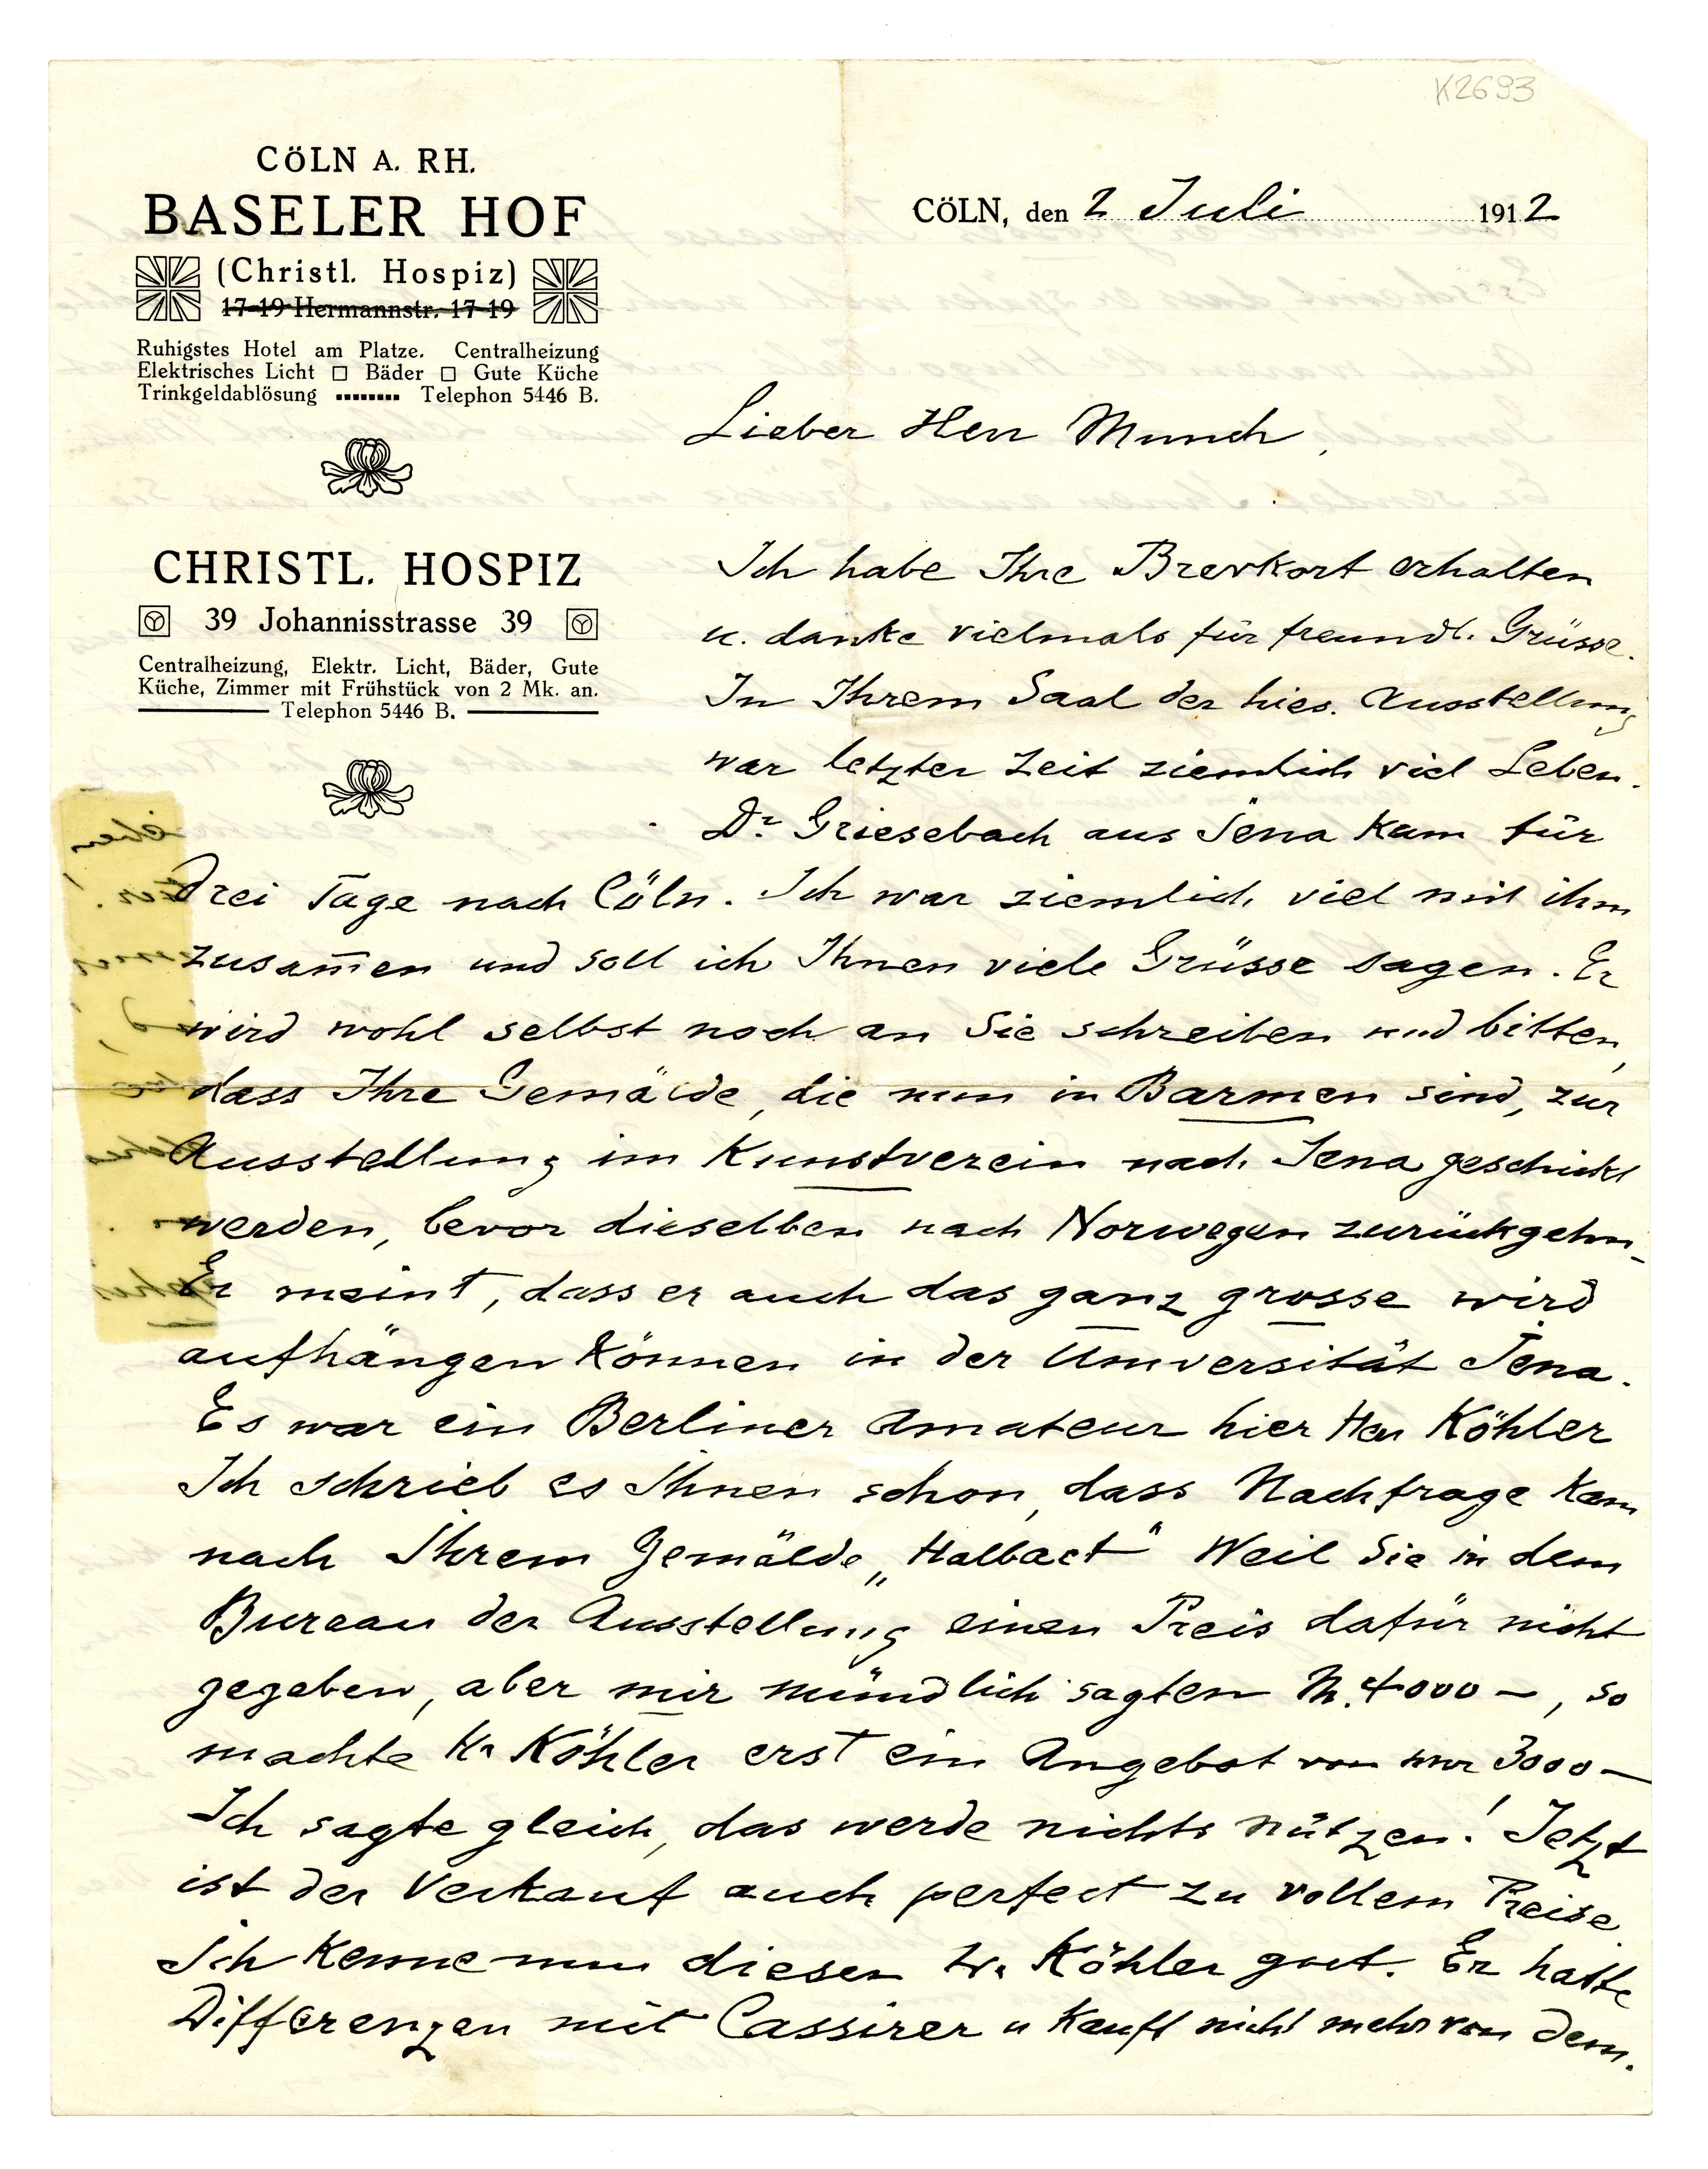 K2693
CÖLN A. RH.
BASELER HOF
(Christl. Hospiz)
17-19 Hermannstr. 17-19
Ruhigstes Hotel am Platze. Centralheizung
Elektrisches Licht □ Bäder □ Gute Küche
Trinkgeldablösung ........ Telephon 5446 B.
CHRISTL. HOSPIZ
39 Johannisstrasse 39
Centralheizung, Elektr. Licht, Bäder, Gute
Küche, Zimmer mit Frühstück von 2 Mk. an.
Telephon 5446 B.
CÖLN, den 2 Juli 1912
Lieber Herr Munch,
Ich habe Ihre Brevkort erhalten
u. danke vielmals für freundl. Grüsse.
In Ihrem Saal der hies. Ausstellung
war letzter Zeit ziemlich viel Leben.
Dr Griesebach aus Jena kam für
drei Tage nach Cöln. Ich war ziemlich viel mit ihm
zusam̄en und soll ich Ihnen viele Grüsse sagen. Er
wird wohl selbst noch an Sie schreiben und bitten,
dass Ihre Gemälde, die nun in Barmen sind, zur
Ausstellung im Kunstverein nach Jena geschickt
werden, bevor dieselben nach Norwegen zurückgehn.
Er meint, dass er auch das ganz grosse wird
aufhängen können in der Universität Jena.
Es war ein Berliner Amateur hier Herr Köhler
Ich schrieb es Ihnen schon, dass Nachfrage kam
nach Ihrem Gemälde „Halbact" Weil Sie in dem
Bureau der Ausstellung einen Preis dafür nicht
gegeben, aber mir mündlich sagten M. 4000 –, so
machte Hr Köhler erst ein Angebot von nur 3000 –
Ich sagte gleich, das werde nichts nützen! Jetzt
ist der Verkauf auch perfect zu vollem Preise.
Ich kenne nun diesen Hr. Köhler gut. Er hatte
Differenzen mit Cassirer u kauft nicht mehr von dem.